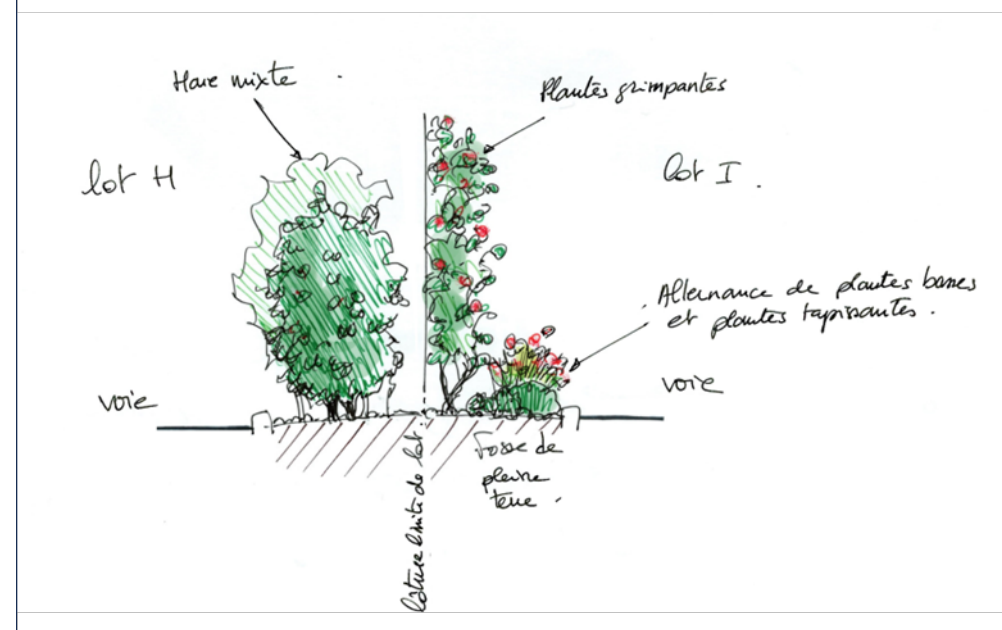 Haie mixte
Plantes grimpantes
lot H
lot I.
Alternance de plantes basses
et plantes tapissantes.
voie
voie
Fosse de
pleine
terre.
clôture limite de lot.